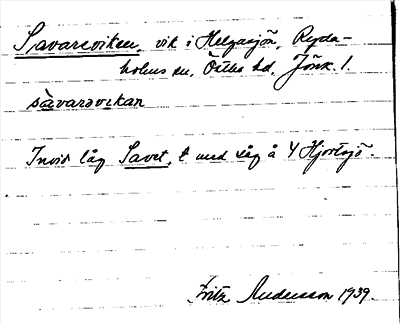 Savareviken, vik i Helgasjön, Ryda-
holms sn, Östbo hd, Jönk. l.
sàvarəvikan
Invid låg Savet, t med såg å 4 Hjortsjö.
Fritz Andersson 1939.